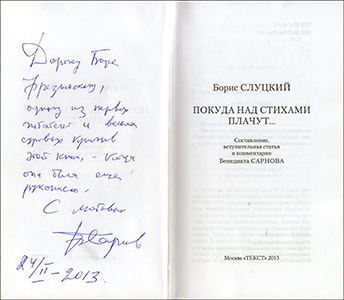 Дорогому Боре
Фрезинскому,
одному из первых
читателей и весьма
суровых критиков
этой книги, - когда
она была еще
рукописью.
С любовью
БСарнов
24/II-2013.
Борис СЛУЦКИЙ
ПОКУДА НАД СТИХАМИ
ПЛАЧУТ...
Составление,
вступительная статья
и комментарии
Бенедикта САРНОВА
Москва «ТЕКСТ» 2013